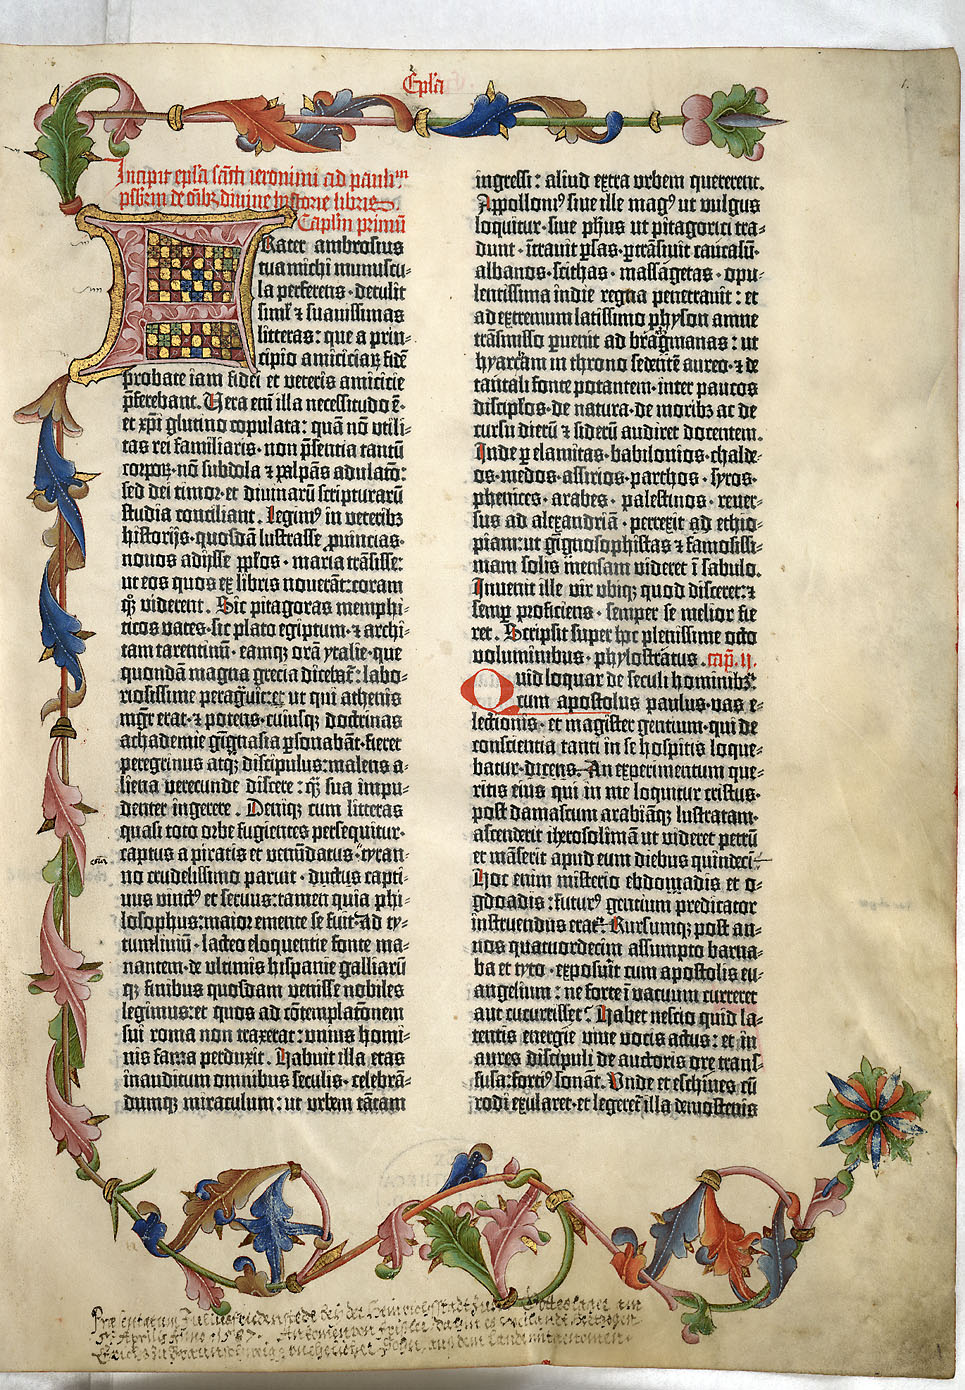 Epl'a
Incipit epl'a sancti ieronimi ad paulinum
pſbiterum de omnibꝫ divine hiſtorie libris
Capl'm primū
FRater ambroſius
tua michi munuſcu-
la perferens · detulit
ſimĺ ⁊ ſuaviſſimas
litteras: que a prin-
cipio amiciciaꝝ fidē
probate iam fidei et veteris amicicie
p̄ferebant. Vera em̄ illa neceſſitudo ē·
et xp̄i glutino copulata: quā nō vtili-
tas rei familiaris· non p̄ſentia tantū
corpoꝝ· nō ſubdola ⁊ palpās adulatō:
ſed dei timor· et divinarū ſcripturarū
ſtudia conciliant. Legimꝰ in veteribꝫ
hiſtorijs· quoſdā luſtraſſe ꝓuincias·
nouos adijſſe pp̄los· maria trāſiſſe:
ut eos quos ex libris nouerāt: coram
qꝫ viderent. Sic pitagoras memphi-
ticos vates· ſic plato egiptum· ⁊ archi-
tam tarentinū· eamqꝫ orā ytalie· que
quondā magna grecia dicebat̄: labo-
rioſiſſime peragrauit: et ut qui athenis
mgr̄ erat· ⁊ potens· cuiuſqꝫ doctrinas
achademie gignaſia ꝑſonabāt· fieret
peregrinus atqꝫ diſcipulus: malens a-
liena verecunde diſcere: qꝫ ſua impu-
denter ingerere. Deniqꝫ cum litteras
quaſi toto orbe fugientes perſequitur·
captus a piratis et venūdatus· tyran-
no crudeliſſimo paruit· ductus capti-
uus vinctꝰ et ſeruus: tamen quia phi-
loſophus: maior emente ſe fuit· Ad ty-
tumliuiū· lacteo eloquentie fonte ma-
nantem· de vltimis hiſpanie galliarū
qꝫ finibus quoſdam veniſſe nobiles
legimus: et quos ad cōtemplatōnem
ſui roma non traxerat: vnius homi-
nis fama perduxit. Habuit illa etas
inauditum omnibus ſeculis· celebrā-
dumqꝫ miraculum: ut vrbem tātam
ingreſſi: aliud extra vrbem quererent.
Appolloniꝰ ſiue ille magꝰ ut vulgus
loquitur· ſiue ph̄us ut pitagorici tra-
dunt· ītrauit ꝑſas· ꝑtrāſiuit caucaſū·
albanos· ſcithas· maſſagetas· opu-
lentiſſima indie regna penetrauit: et
ad extremum latiſſimo phyſon amne
trāſmiſſo ꝑuenit ad bragmanas: ut
hyarcam in throno ſedētē aureo· ⁊ de
tantali fonte potantem· inter paucos
diſcipl'os· de natura· de moribꝫ ac de
curſu dierū ⁊ ſiderū audiret docentem.
Inde ꝑ elamitas· babilonios· chalde-
os· medos· aſſirios· parthos· ſyros·
phenices· arabes· paleſtinos· reuer-
ſus ad alexandriā· perrexit ad ethio-
piam: ut gignoſophiſtas ⁊ famoſiſſi-
mam ſolis menſam videret ī ſabulo.
Inuenit ille vir vbiqꝫ quod diſceret: ⁊
ſemꝑ proficiens· ſemper ſe melior fie
ret. Scripſit ſuper hoc pleniſſime octo
voluminibus· phyloſtratus. cap. ii.
Quid loquar de ſeculi hominibꝫ:
cum apoſtolus paulus· vas e-
lectionis· et magiſter gentium· qui de
conſcientia tanti in ſe hoſpitis loque-
batur· dicens. An experimentum que-
ritis eius qui in me loquitur criſtus·
poſt damaſcum arabiāqꝫ luſtratam·
aſcenderit iheroſolimā ut videret petrū
et māſerit apud eum diebus quindeci·
Hoc enim miſterio ebdomadis et o-
gdoadis: futurꝰ gentium predicator
inſtruendus erat· Rurſumqꝫ poſt an-
nos quatuordecim aſſumpto barna-
ba et tyto· expoſuit cum apoſtolis eu-
angelium: ne forte ī vacuum curreret
aut cucurriſſet· Habet neſcio quid la-
tentis energie viue vocis actus: et in
aures diſcipuli de auctoris ore tranſ-
fuſa: fortiꝰ ſonāt. Vnde et eſchines cū
rodi exularet· et legeret̄ illa demoſtenis